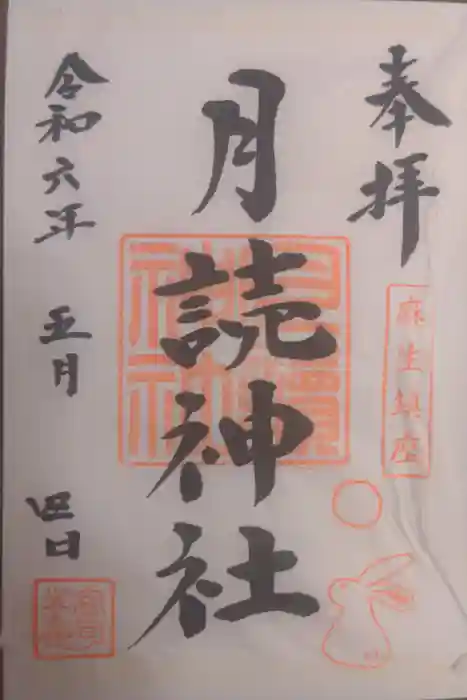 奉拝
麻生鎮座
月読神社
令和六年 五月 四日